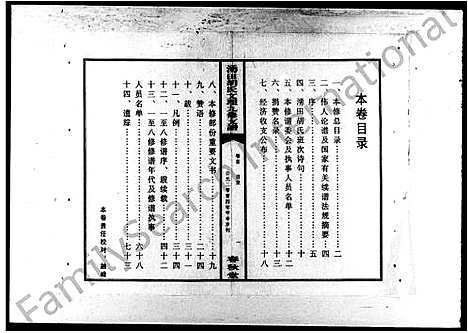 本卷目录
一、本修总目录 二
二、伟人论谱及国家有关续谱法规摘要 四
三、序 五
四、汤田胡氏班次诗句 十
五、本修谱委会及执事人员名单 十二
六、捐赞名录 十六
七、经济收支公布 十八
汤田胡氏文理九修支谱
卷首 目录
一
春秋堂
八、本修部份重要文书 十九
九、赞语 二十四
十、跋 三十
十一、凡例 三十四
十二、一至八修谱序、跋续载 四十二
十三、一至八修修谱年代及修谱执事
人员名单 六十八
十四、遗踪 七十三
本卷责任校对
FamilySearch International